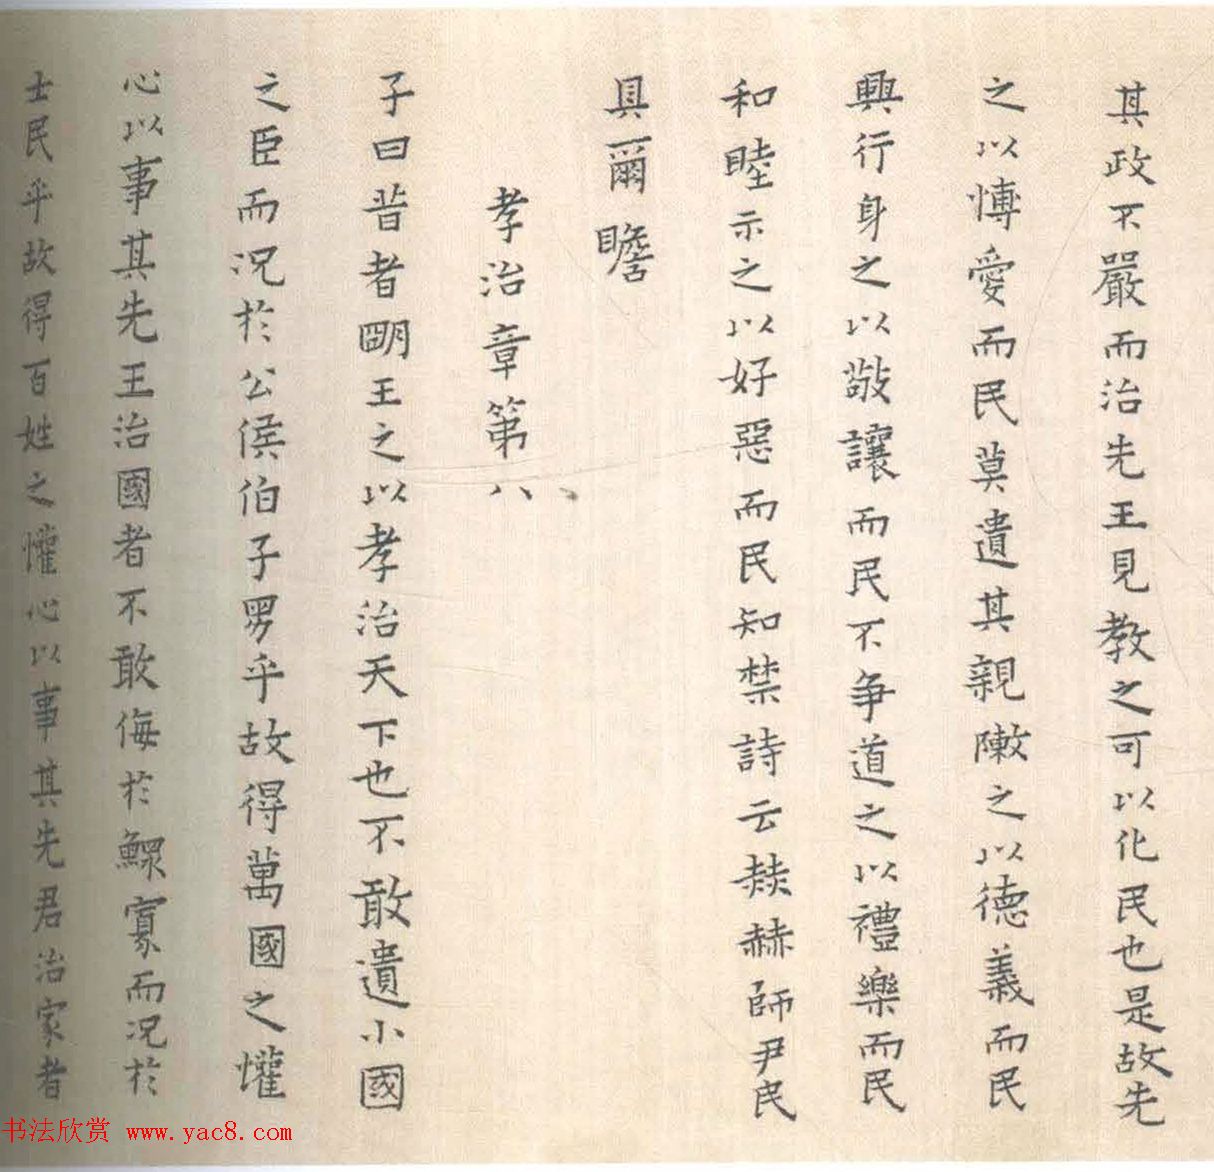 其政不嚴而治先王見教之可以化民也是故先
之以愽愛而民莫遺其親陳之以德義而民
興行身之以敬讓而民不争道之以禮樂而民
和睦示之以好惡而民知禁詩云赫赫師尹民
具爾瞻
孝治章第八
子曰昔者明王之以孝治天下也不敢遺小國
之臣而況於公侯伯子男乎故得萬國之懽
心以事其先王治國者不敢侮於鰥寡而况於
士民乎故得百姓之懽心以事其先君治家者
书法欣赏 www.yac8.com